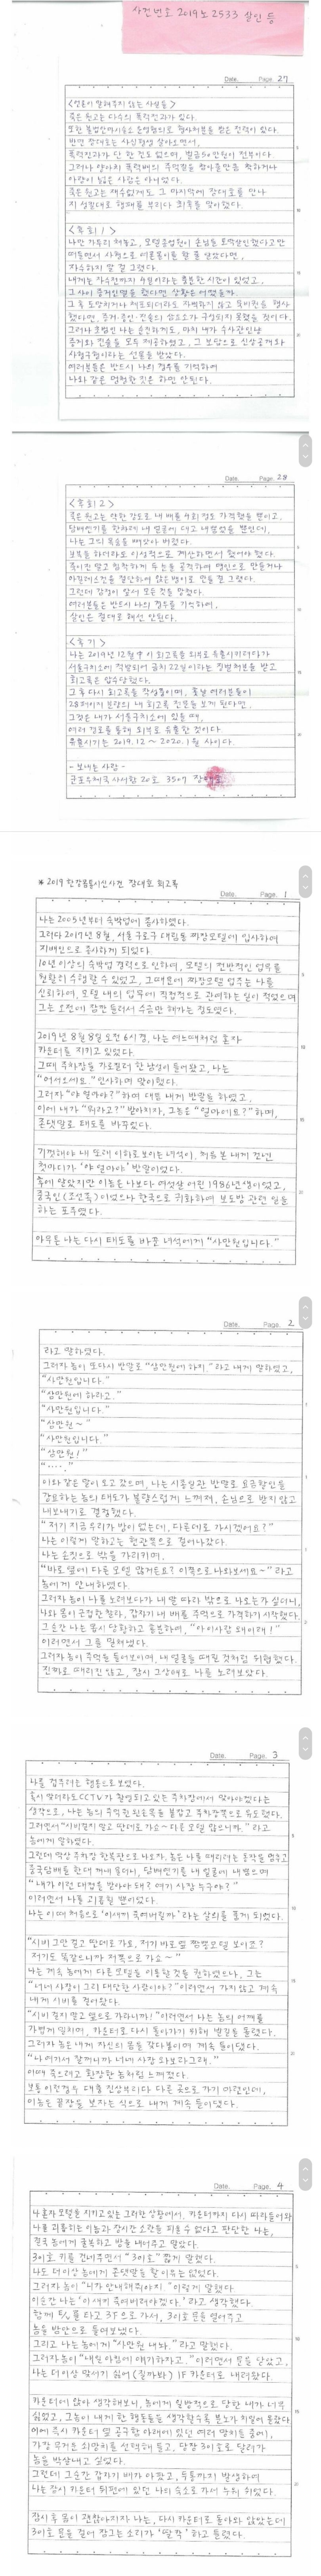 사건번호 2019노2533 살인 등
Date. Page. 27
<언론이 말해주지 않는 사실들>
죽은 원고는 다수의 폭력전과가 있다.
또한 불법안마시술소 운영혐의로 형사처분을 받은 전력이 있다.
반면 장대호는 사십평생 살아오면서,
폭력전과가 단 한 건도 없으며, 벌금50만원이 전부이다.
그러나 양아치 폭력배의 주먹질을 참아줄만큼 착하거나
사랑이 넘친 사람은 아니었다.
죽은 원고는 재수없게도 그 마지막에 장대호를 만나
지 성질대로 행패를 부리다 최후를 맞이했다.
<후회1>
나만 가위리 쳐놓고, 모텔종업원이 손님을 토막살인했다고만
떠들면서 사형으로 여론몰이를 할 줄 알았다면,
자수하지 말 걸 그랬다.
내게는 자수전까지 9일이라는 충분한 시간이 있었고,
그 사이 증거인멸을 했다면 상황은 어땠을까
그 후 도망치거나 체포되더라도 자백하지 않고 묵비권을 행사
했다면, 증거·증인·진술의 삼요소가 구성되지 못했을 것이다.
그러나 초범인 나는 순진하게도, 마치 내가 수사관인냥
증거와 진술을 모두 제공하였고, 그 보답으로 신상공개와
사형구형이라는 선물을 받았다.
여러분들은 반드시 나의 경우를 기억하여
나와 같은 멍청한 짓은 하면 안된다.
Date. Page. 28
<후회2>
죽은 원고는 약한 강도로 내 배를 4회 정도 가격했을 뿐이고,
담배연기를 한차례 내 얼굴에 대고 내뿜었을 뿐인데,
나는 그의 목숨을 빼앗아 버렸다.
보복을 하더라도 이성적으로 계산하면서 했어야 했다.
죽이진 말고 침착하게 두 눈을 공격하여 맹인으로 만들거나
아킬레스건을 절단하여 앉은뱅이로 만들 걸 그랬다.
그런데 감정이 앞서 모든 것을 망쳤다.
여러분들은 반드시 나의 경우를 기억하여,
살인은 절대로 해선 안된다.
<후기>
나는 2019년 12월中 이 회고록을 외부로 유출시키려다가
서울구치소에 적발되어 금치 22일이라는 징벌처분을 받고
회고록은 압수당했다.
그 후 다시 회고록을 작성중이며, 훗날 여러분들이
28페이지 분량의 내 회고록 전문을 보게 된다면,
그것은 내가 서울구치소에 있을 때,
여러 경로를 통해 외부로 유출한 것이다
유출시기는 2019.12 ~ 2020.1월 사이다.
- 보내는 사람 -
군포우체국 사서함 20호 3507 장대호
* 2019 한강몸통시신사건 장대호 회고록
Date. Page. 1
나는 2005년부터 숙박업에 종사하였다.
그러다 2017년 8월, 서울 구로구 대림동 찌장모텔에 입사하여
지배인으로 종사하게 되었다.
10년 이상의 숙박업 경력으로 인하여, 모텔의 전반적인 업무를
원활히 수행할 수 있었고, 그 때문에 찌장모텔 업주는 나를
신뢰하여, 모텔 내의 업무에 직접적으로 관여하는 일이 적었으며
그는 오전에 잠깐 들러서 수금만 해가는 정도였다.
2019년 8월 8일 오전 6시 경, 나는 여느때처럼 혼자
카운터를 지키고 있었다.
그때 주차장을 가로질러 한 남성이 들어왔고, 나는
"어서오세요." 인사하며 맞이했다.
그러자 "야 얼마야?" 하며 대뜸 내게 반말을 하였고,
이에 내가 "뭐라고?" 받아치자, 그놈은 "얼마에요?" 하며,
존댓말로 태도를 바꾸었다.
기껏해야 내 또래 이하로 보이는 녀석이, 처음 본 내게 건낸
첫마디가 '야 얼마야' 반말이었다.
후에 알았지만 이놈은 나보다 여섯살 어린 1986년생이었고,
중국인(조선족)이었으나 한국으로 귀화하여 보도방 관련 일을
하는 포주였다.
아무튼 나는 다시 태도를 바꾼 녀석에게 "사만원입니다."
Date. Page. 2
라고 말하였다.
그러자 놈이 또다시 반말로 "삼만원에 하지." 라고 내게 말하였고,
"사만원입니다."
"삼만원에 하라고."
"사만원입니다."
"삼만원~"
"사만원입니다."
"삼만원!"
"....."
이와 같은 말이 오고 갔으며, 나는 시종일관 반말로 요금할인을
강요하는 놈의 태도가 불량스럽게 느껴져, 손님으로 받지 않고
내보내기로 결정했다.
"저기 지금 우리가 방이 없는데, 다른데로 가시겠어요?"
나는 이렇게 말하고는 현관쪽으로 걸어나갔다.
나는 손짓으로 밖을 가리키며,
"바로 옆에 다른 모텔 많거든요? 이쪽으로 나와보세요~" 라고
놈에게 안내하였다.
그러자 놈이 나를 노려보다가 내 말 따라 밖으로 나오는가 싶더니,
나와 몸이 근접한 찰라, 갑자기 내 배를 주먹으로 가격하기 시작했다.
그순간 나는 몹시 당황하고 흥분하여, "아 이사람 왜이래!"
이러면서 그를 밀쳐냈다.
그러자 놈이 주먹을 들어보이며, 내 얼굴을 때릴 것처럼 위협했다.
진짜로 때리진 않고, 잠시 그상태로 나를 노려보았다.
Date. Page. 3
나를 겁주려는 행동으로 보였다.
혹시 맞더라도 CCTV가 촬영되고 있는 주차장에서 맞아야겠다는
생각으로, 나는 놈의 주먹쥔 왼손목을 붙잡고 주차장쪽으로 유도했다.
그러면서 "시비걸지 말고 딴데로 가요~ 다른 모텔 많으니까." 라고
놈에게 말하였다.
그런데 막상 주차장 한복판으로 나오자, 놈은 나를 때리려는 동작을 멈추고
중국담배를 한대 꺼내 물더니, 담배연기를 내 얼굴에 내뿜으며
"내가 이런 대접을 받아야 돼? 여기 사장 누구야?"
이러면서 나를 괴롭힐 뿐이었다.
나는 이때 처음으로 '이새끼 죽여버릴까' 라는 살의를 품게 되었다.
"시비 그만 걸고 딴데로 가요, 저기 바로 옆 짱짱모텔 보이죠?
저기도 똑같으니까 저쪽으로 가요~"
나는 계속 놈에게 다른 모텔을 이용할 것을 권하였으나, 그는
"너네 사장이 그리 대단한 사람이야?" 이러면서 가지않고 계속
내게 시비를 걸어왔다.
"시비 걸지 말고 옆으로 가라니까!" 이러면서 나는 놈의 어깨를
가볍게 밀치며, 카운터로 다시 돌아가기 위해 발길을 돌렸다.
그러자 놈은 내게 자신의 몸을 갖다붙이며 계속 들이댔다.
"나 여기서 잘꺼니까 너네 사장 오라고 그래."
이때 죽으려고 환장한 놈처럼 느껴졌다.
보통 이런경우 대충 진상부리다 다른 곳으로 가기 마련인데,
이놈은 끝장을 보자는 식으로 내게 계속 들이댔다.
Date. Page. 4
나 혼자 모텔을 지키고 있는 그러한 상황에서, 카운터까지 다시 따라들어와
나를 괴롭히는 이놈과 장시간 소란을 피울 수 없다고 판단한 나는,
결국 놈에게 굴복하고 방을 내어주고 말았다.
301호 키를 건네주면서 "301호" 짧게 말했다.
나도 더이상 놈에게 존댓말을 할 이유는 없었다.
그러자 놈이 "니가 안내해줘야지" 이렇게 말했다.
이순간 나는 '이 새끼 죽여버려야겠다.' 라고 생각했다.
함께 E/L를 타고 3F으로 가서, 301호 문을 열어주고
놈을 방안으로 들여보냈다.
그리고 나는 놈에게 "사만원 내놔." 라고 말했다.
그러자 놈이 "내일 아침에 얘기하자고." 이러면서 문을 닫았고,
나는 더이상 맞서기 싫어 (질까봐) 1F 카운터로 내려왔다.
카운터에 앉아 생각해보니, 놈에게 일방적으로 당한 내가 너무
싫었고, 그놈이 내게 한 행동들을 생각할수록 분노가 치밀어 올랐다
이에 즉시 카운터 옆 공구함 아래에 있던 여러 망치들 중에,
가장 무거운 쇠망치를 선택해 들고, 당장 301호로 달려가
놈을 박살내고 싶었다.
그런데 그순간 갑자기 배가 아팠고, 두통까지 발생하여
나는 잠시 카운터 뒤편에 있던 나의 숙소로 가서 누워 쉬었다.
잠시 후 몸이 괜찮아지자 나는, 다시 카운터로 돌아와 앉았는데
301호 문을 걸어 잠그는 소리가 '딸깍' 하고 들렸다.